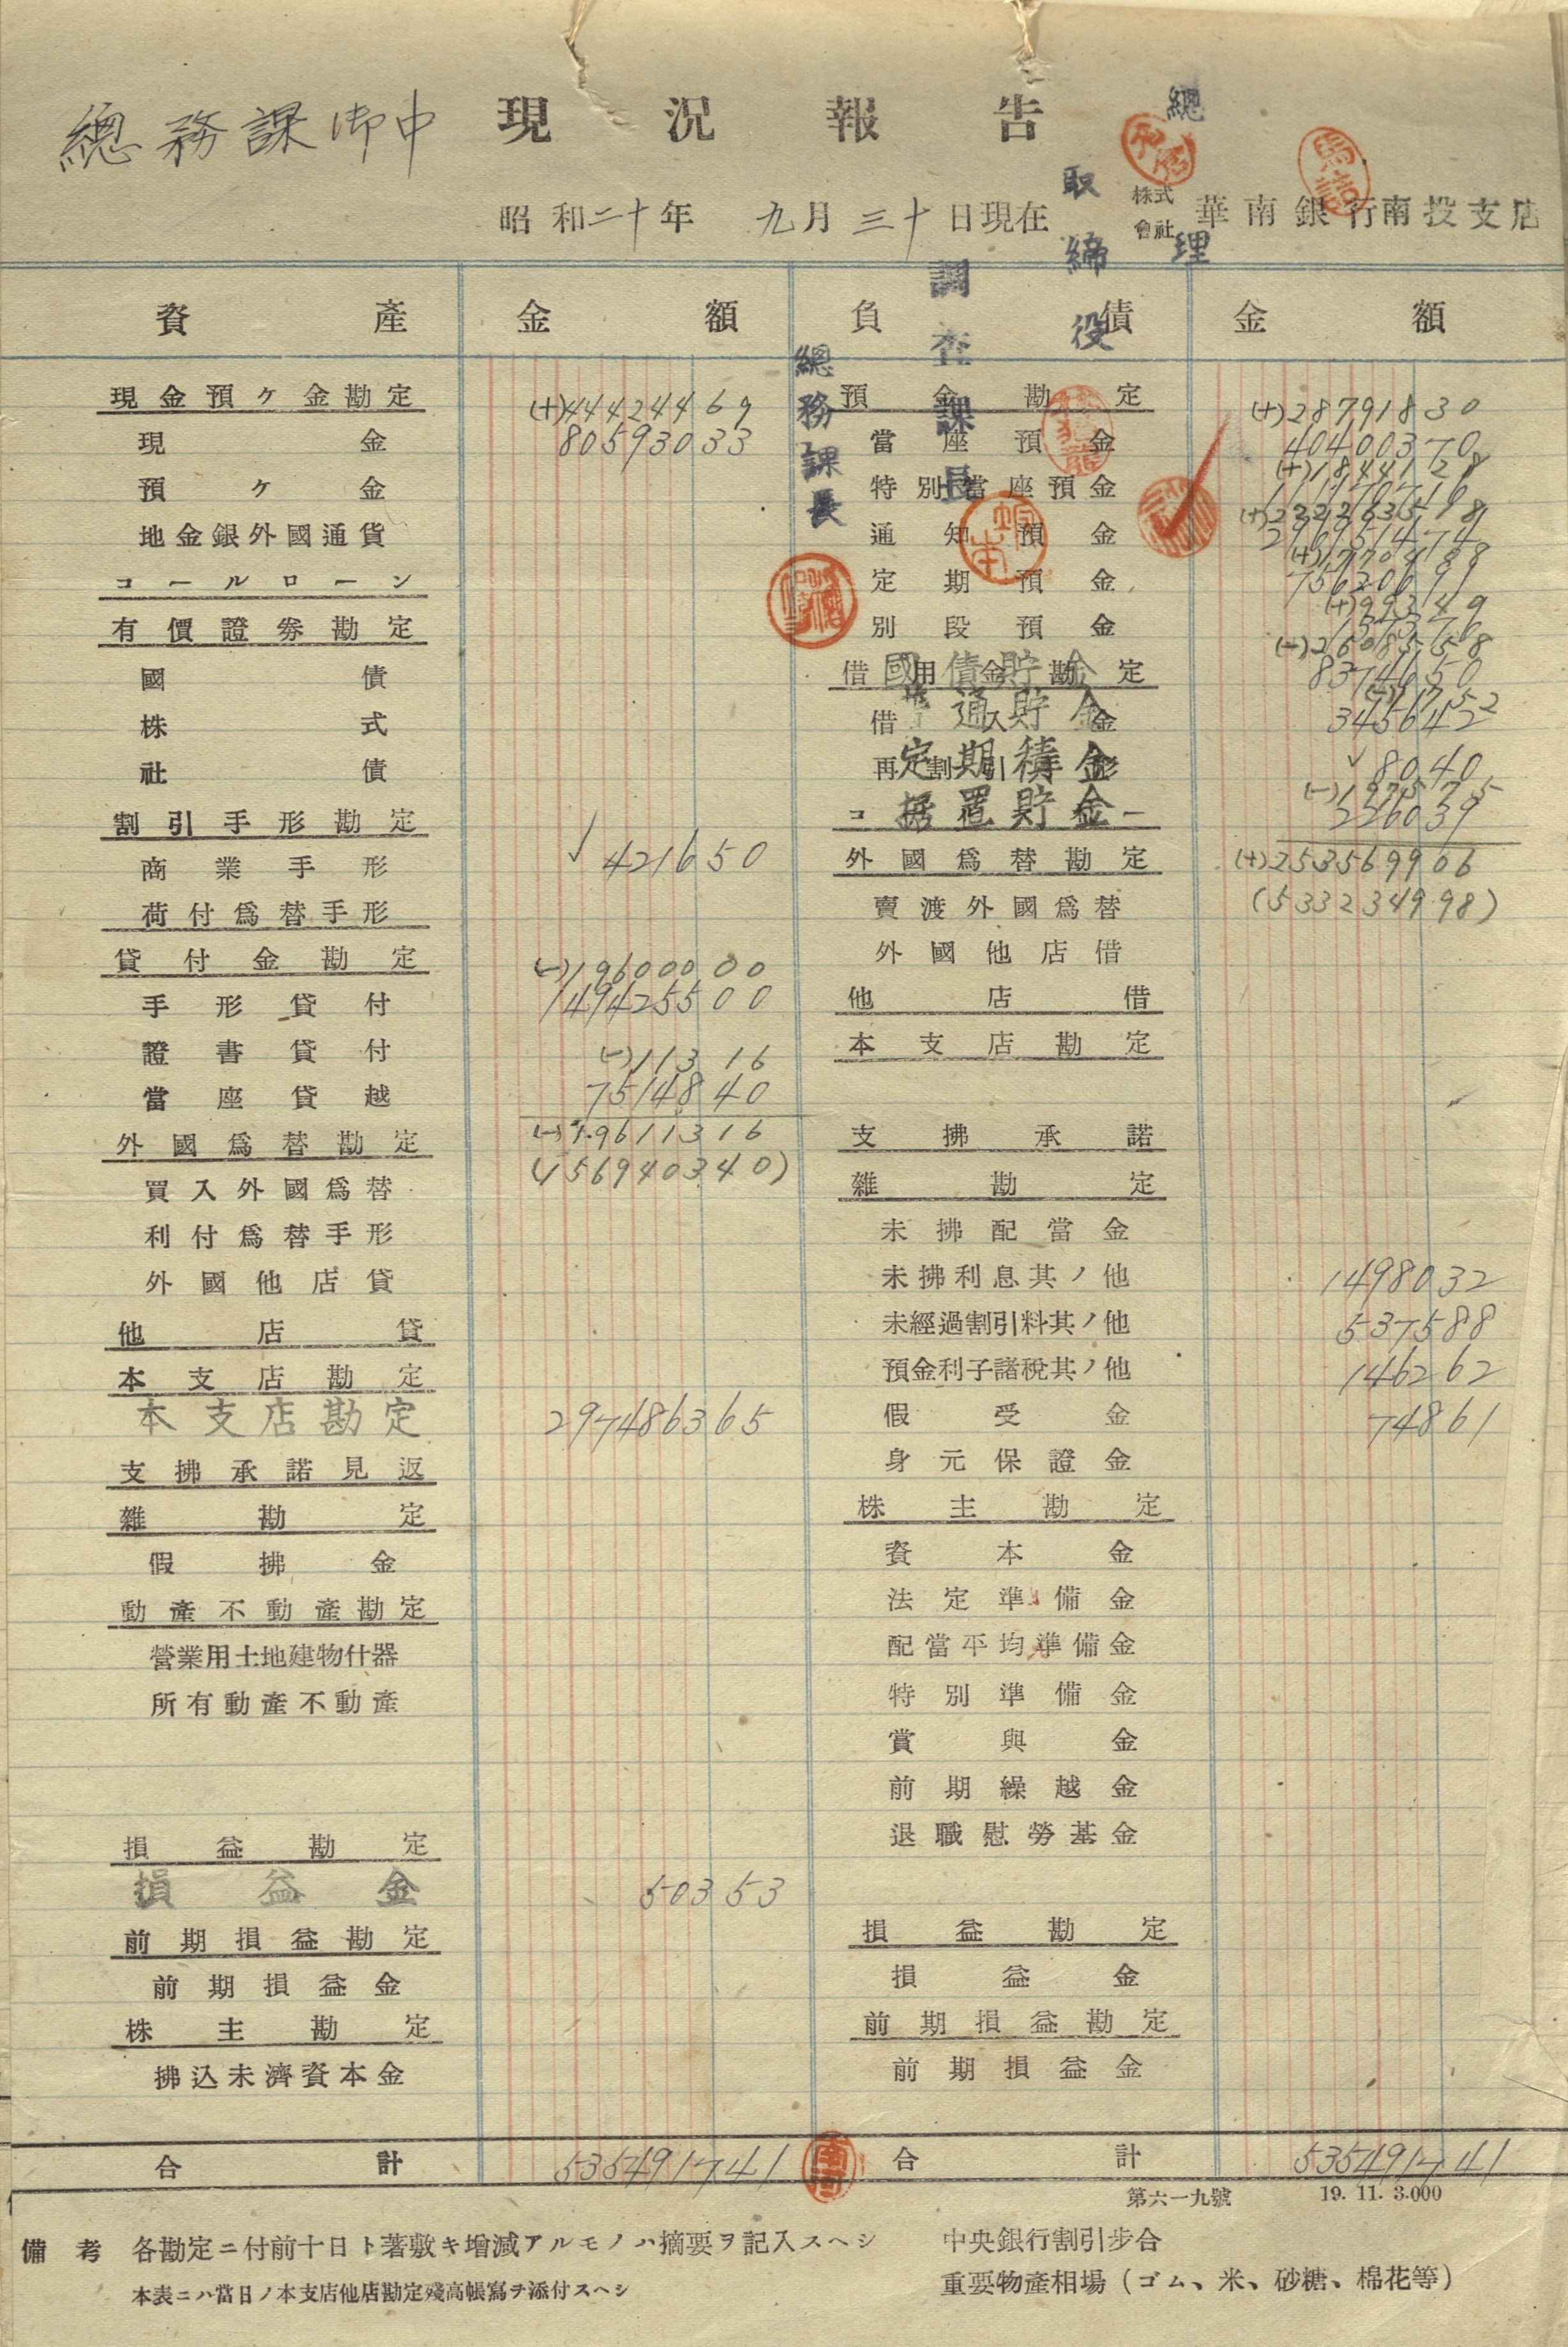 總務課御中
現況報告
總理
取締役
昭和二十年 九月三十日現在
株式會社 華南銀行南投支店
調査課長
總務課長
資產 金額 負債 金額
現金預ヶ金勘定 (+)444244 69
現金 805930 33
預ヶ金
地金銀外國通貨
コールローン
有價證券勘定
國債
株式
社債
割引手形勘定
商業手形 ✓ 4216 50
荷付爲替手形
貸付金勘定 (-)196000 00
手形貸付 1494255 00
證書貸付 (-)113 16
當座貸越 75148 40
外國爲替勘定 (-)196113 16
買入外國爲替 (1569403 40)
利付爲替手形
外國他店貸
他店貸
本支店勘定
本支店勘定 2974863 65
支拂承諾見返
雜勘定
假拂金
動產不動產勘定
營業用土地建物什器
所有動產不動產
損益勘定
損益金 503 53
前期損益勘定
前期損益金
株主勘定
拂込未濟資本金
合計 5354917 41
預金勘定 (+)287918 30
當座預金 404003 70
(+)18441 28
特別當座預金 1111707 16
(+)2222635 98
通知預金 2969514 74
(+)17704 88
定期預金 756206 91
(+)993 49
別段預金 1373 76
(-)26085 58
借用金勘定
國債貯金 83746 50
借入金
普通貯金 3456 42
再割引手形
定期積金 ✓ 80 40
(-)1975 75
据置貯金 2260 39
外國爲替勘定 (+)2535699 06
賣渡外國爲替 (5332349 98)
外國他店借
他店借
本支店勘定
支拂承諾
雜勘定
未拂配當金
未拂利息其ノ他 14980 32
未經過割引料其ノ他 5375 88
預金利子諸稅其ノ他 1462 62
假受金 748 61
身元保證金
株主勘定
資本金
法定準備金
配當平均準備金
特別準備金
賞與金
前期繰越金
退職慰勞基金
損益勘定
損益金
前期損益勘定
前期損益金
合計 5354917 41
第六一九號 19. 11. 3.000
備考 各勘定ニ付前十日ト著敷キ增減アルモノハ摘要ヲ記入スヘシ
本表ニハ當日ノ本支店他店勘定殘高帳寫ヲ添付スヘシ
中央銀行割引步合
重要物產相場（ゴム、米、砂糖、棉花等）